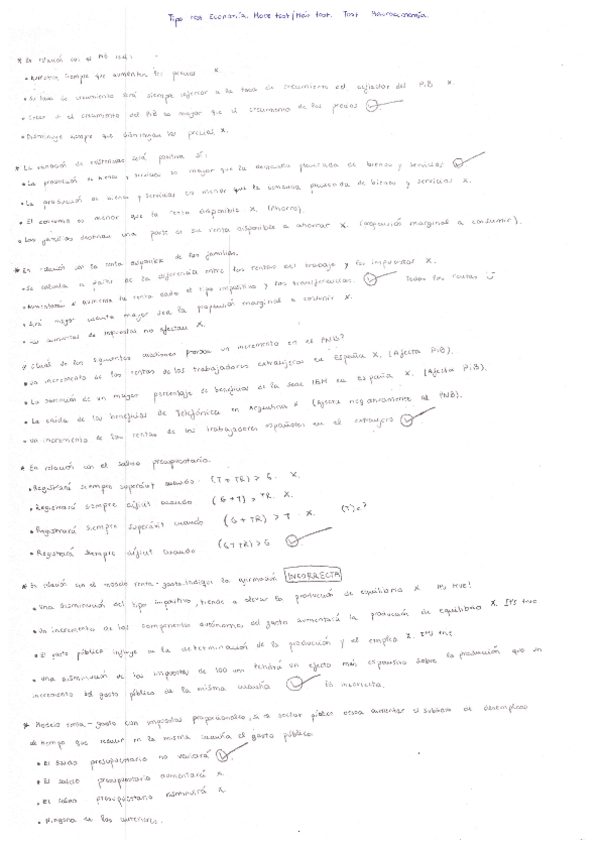 Tipo test Economía. More test/Más test. Test Macroeconomía.
* En relación con el PIB real:
• Aumenta siempre que aumenten los precios X.
• Su tasa de crecimiento será siempre inferior a la tasa de crecimiento del deflactor del PIB X.
• Crece si el crecimiento del PIB es mayor que el crecimiento de los precios
• Disminuye siempre que disminuyan los precios X.
* La variación de existencias será positiva si:
• La producción de bienes y servicios es mayor que la demanda planeada de bienes y servicios
• La producción de bienes y servicios es menor que la demanda planeada de bienes y servicios X.
• El consumo es menor que la renta disponible X. (Ahorro).
• Las familias destinan una parte de su renta disponible a ahorrar X. (propensión marginal a consumir).
* En relación con la renta disponible de las familias.
• Se calcula a partir de la diferencia entre las rentas del trabajo y los impuestos X.
• Aumentará si aumenta la renta dado el tipo impositivo y las transferencias. Todas las rentas
• Será mayor cuanto mayor sea la propensión marginal a consumir X.
• aumentos de impuestos no afectan X.
* ¿Cuál de las siguientes cuestiones provoca un incremento en el PNB?
• Un incremento de las rentas de los trabajadores extranjeros en España X. (Afecta PIB).
• La obtención de un mayor porcentaje de beneficios de la sede IBM en España X. (Afecta PIB).
• La caída de los beneficios de Telefónica en Argentina X (Afecta negativamente al PNB).
• Un incremento de las rentas de los trabajadores españoles en el extranjero
* En relación con el saldo presupuestario.
• Registrará siempre superávit cuando (T + TR) > G. X.
• Registrará siempre déficit cuando (G + T) > TR. X.
• Registrará siempre superávit cuando (G + TR) > T. X.
• Registrará siempre déficit cuando (G + TR) > G
* En relación con el modelo renta-gasto, indique la afirmación INCORRECTA
• Una disminución del tipo impositivo, tiende a elevar la producción de equilibrio X It's true!
• Un incremento de los componentes autónomos del gasto aumentará la producción de equilibrio X. It's true
• El gasto público influye en la determinación de la producción y el empleo X. It's true
• Una disminución de los impuestos de 100 um tendrá un efecto más expansivo sobre la producción que un
incremento del gasto público de la misma cuantía Es incorrecta.
* Modelo renta-gasto con impuestos proporcionales, si el sector público desea aumentar el subsidio de desempleo
al tiempo que reducir en la misma cuantía el gasto público
• El saldo presupuestario no variará
• El saldo presupuestario aumentará X.
• El saldo presupuestario disminuirá X.
• Ninguna de las anteriores.